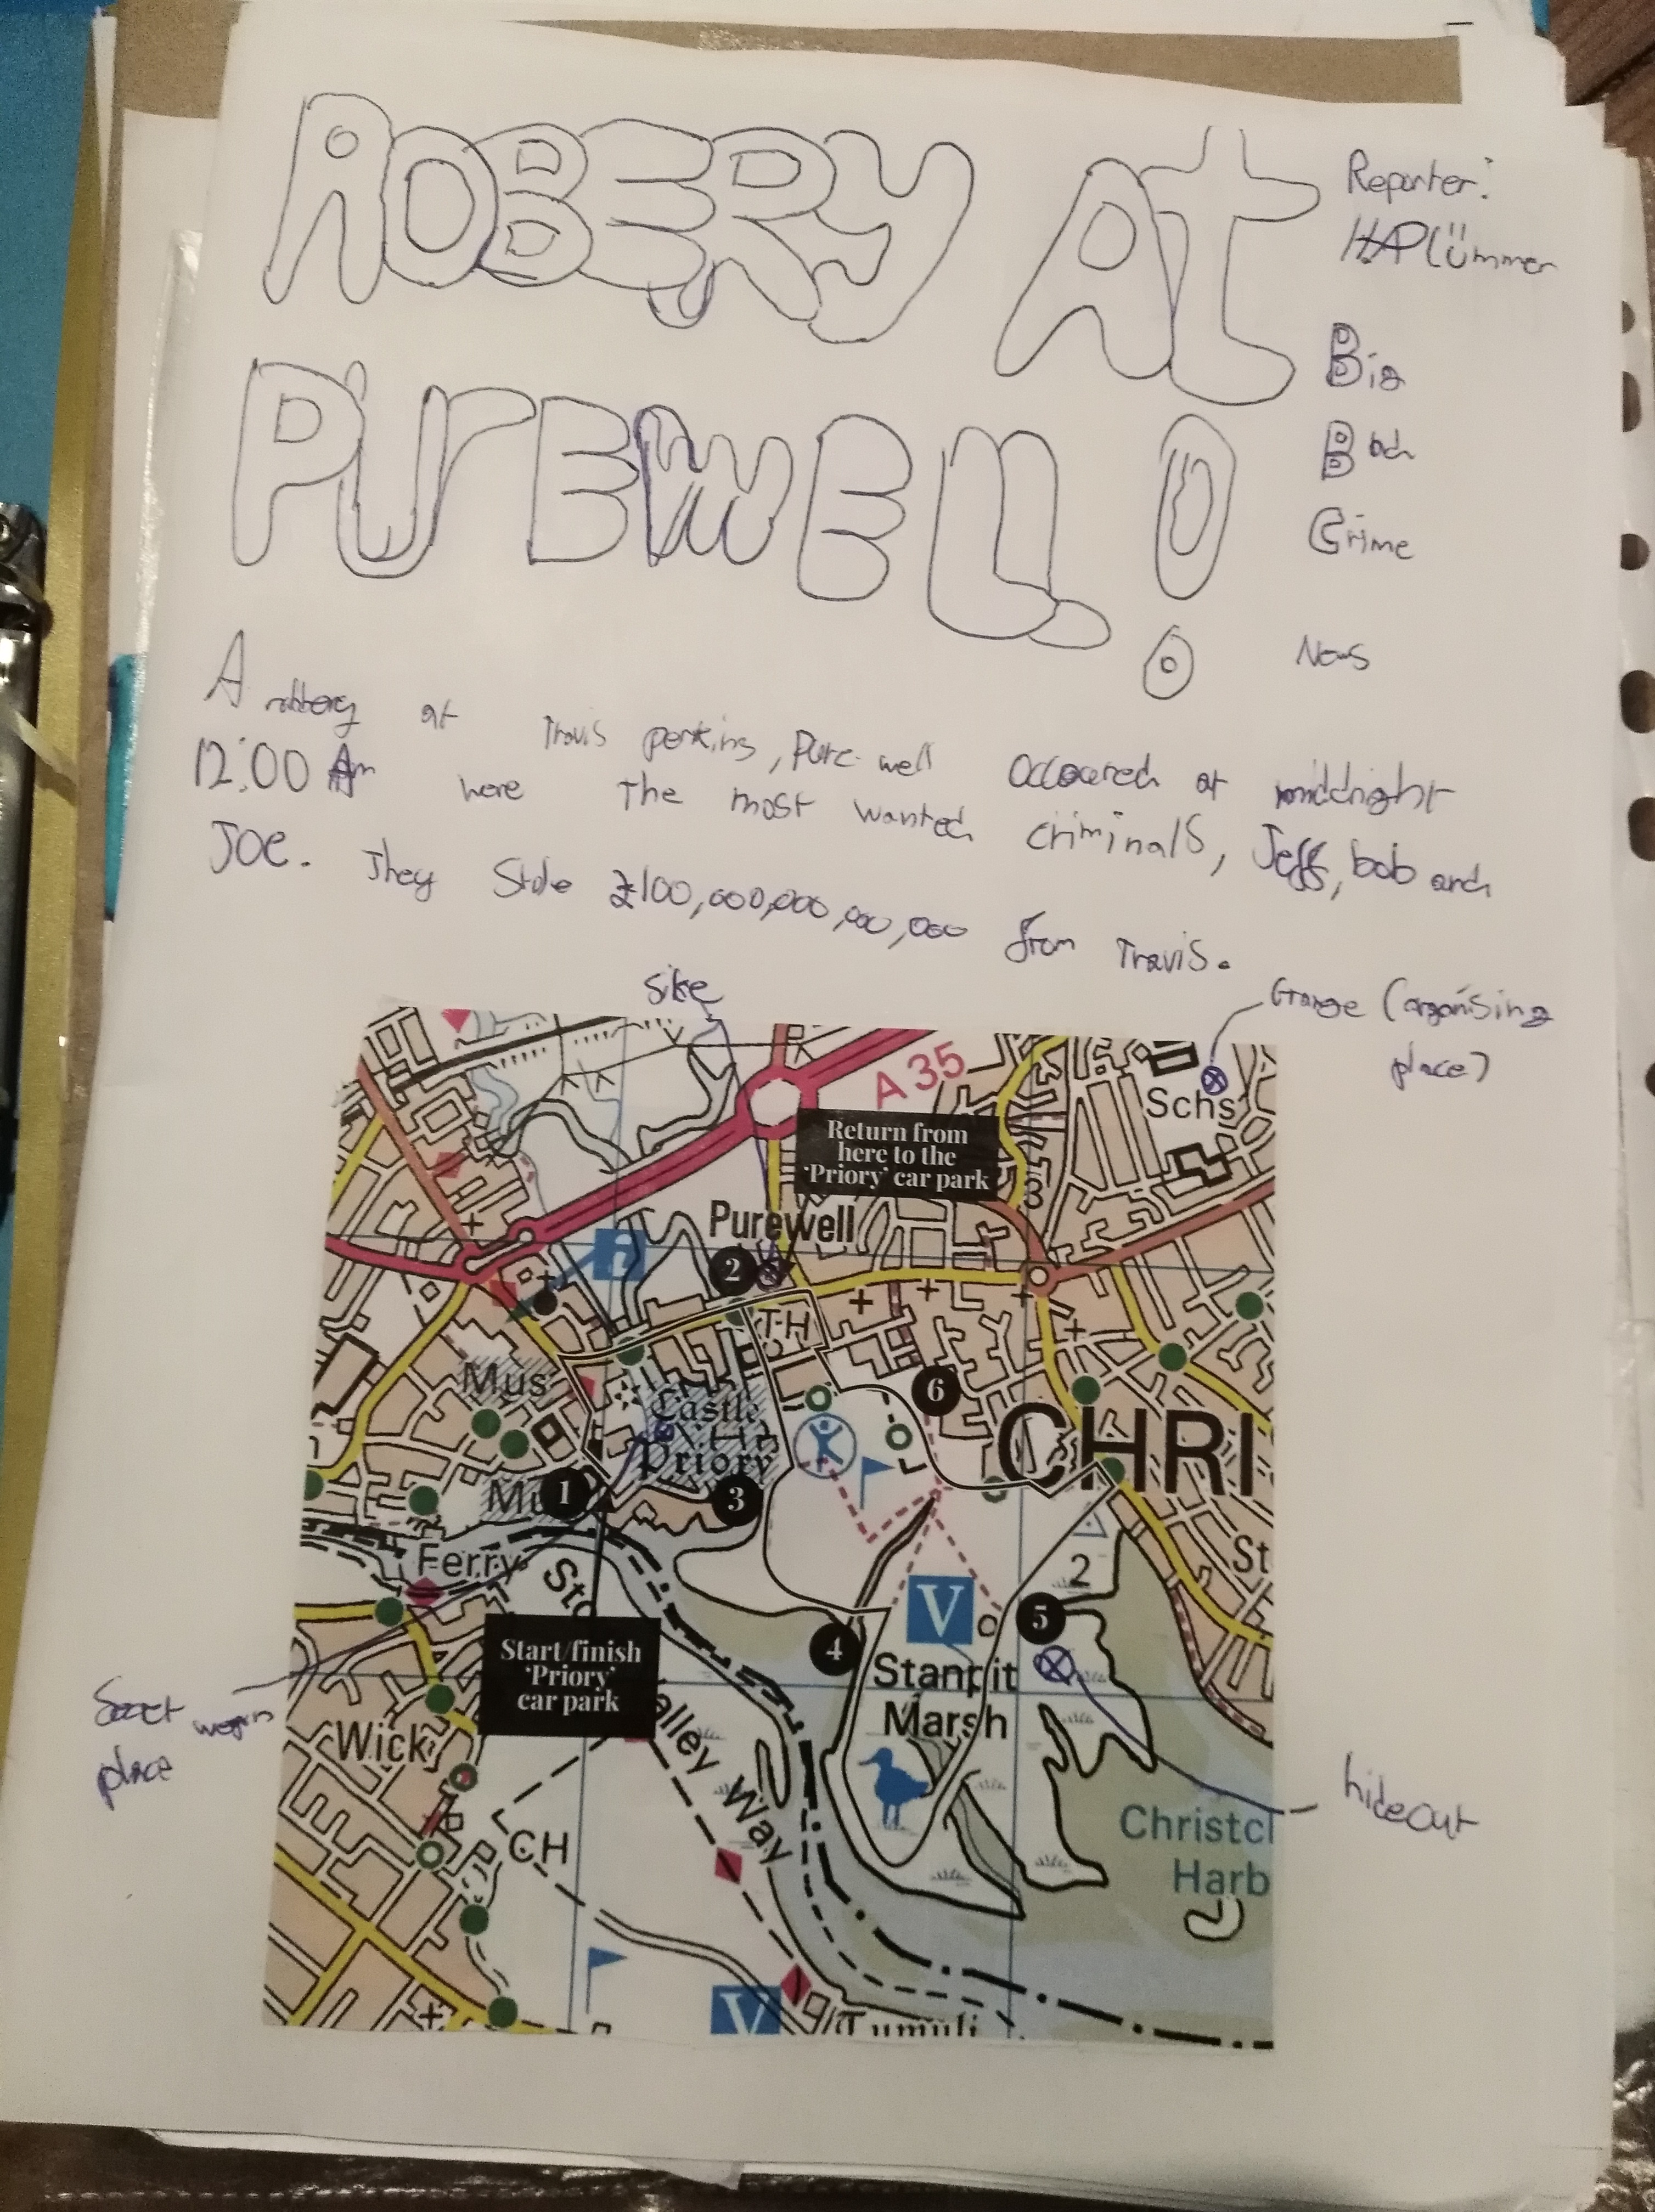 ROBERY At
PUrEwELL!
Reporter:
HAPlümmer
Big
Bad
Crime
News
A robbery at Travis perkins, Purewell occoured at middnight
12:00 Am here the most wanted criminals, Jeff, bob and
JOe. They Stole £100,000,000,000,000 from Travis.
site
Grange (organising
place)
A 35
Schs
Return from
here to the
'Priory' car park
3
Purewell
2
TH
Mus
Castle
Priory
6
CHRI
1
Mu
3
Ferry
Sto
2
St
V
5
4
Start/finish
'Priory'
car park
Stanpit
Marsh
Secret weapon
place
Wick
alley Way
hideout
CH
Christcl
Harb
V
Tumuli